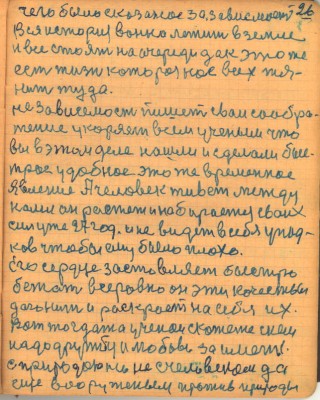 26
чего было сказаное За зависимост
Вся история вонко летит в земле
и все стоят на очереди дак это же
ест тиап которая нас всех тя-
нит туда.
независемост пишет сваи сообра-
жение укоряет всем ученым что
вы в этом деле нашли и сделали быс-
трое удобное это же временное
явление А человек живет между
нами он растет и набираетця своих
сил уже 99 год. и не видет в себя упад-
ков чтобы ему было плохо.
Его сердце заставляет быстро
бегат всеровно он эти качествы
догонит и раскроет на себя их.
Вот тогда та ученая скажет с кем
надо дружбу и любов заимет.
с природаю и не с человеком да
еще вооруженым против природы